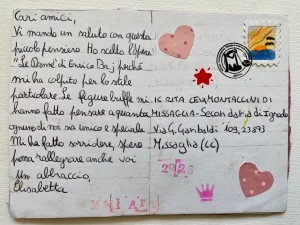 Cari amici,
Vi mando un saluto con questo
piccolo pensiero. Ho scelto l'opera
"Le Dame" di Enrico Baj perché
mi ha colpito per lo stile
particolare. Le figure buffe mi
hanno fatto pensare a quanto
ognuno di noi sia unico e speciale
Mi ha fatto sorridere, spero
possa rallegrare anche voi
Un abbraccio,
Elisabetta
IC RITA LEVI MONTALCINI DI
MISSAGLIA - Secondaria di I grado
Via G. Garibaldi 109, 23873
Missaglia (LC)
2025
MAIL ART